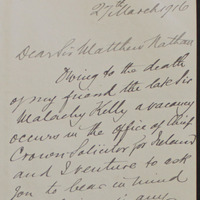 27th March 1916
Dear Sir Matthew Nathan
Owing to the death
of my friend the late Sir
Malachy Kelly a vacancy
occurs in the office of Chief
Crown Solicitor for Ireland
and I venture to ask
you to bear in mind
any